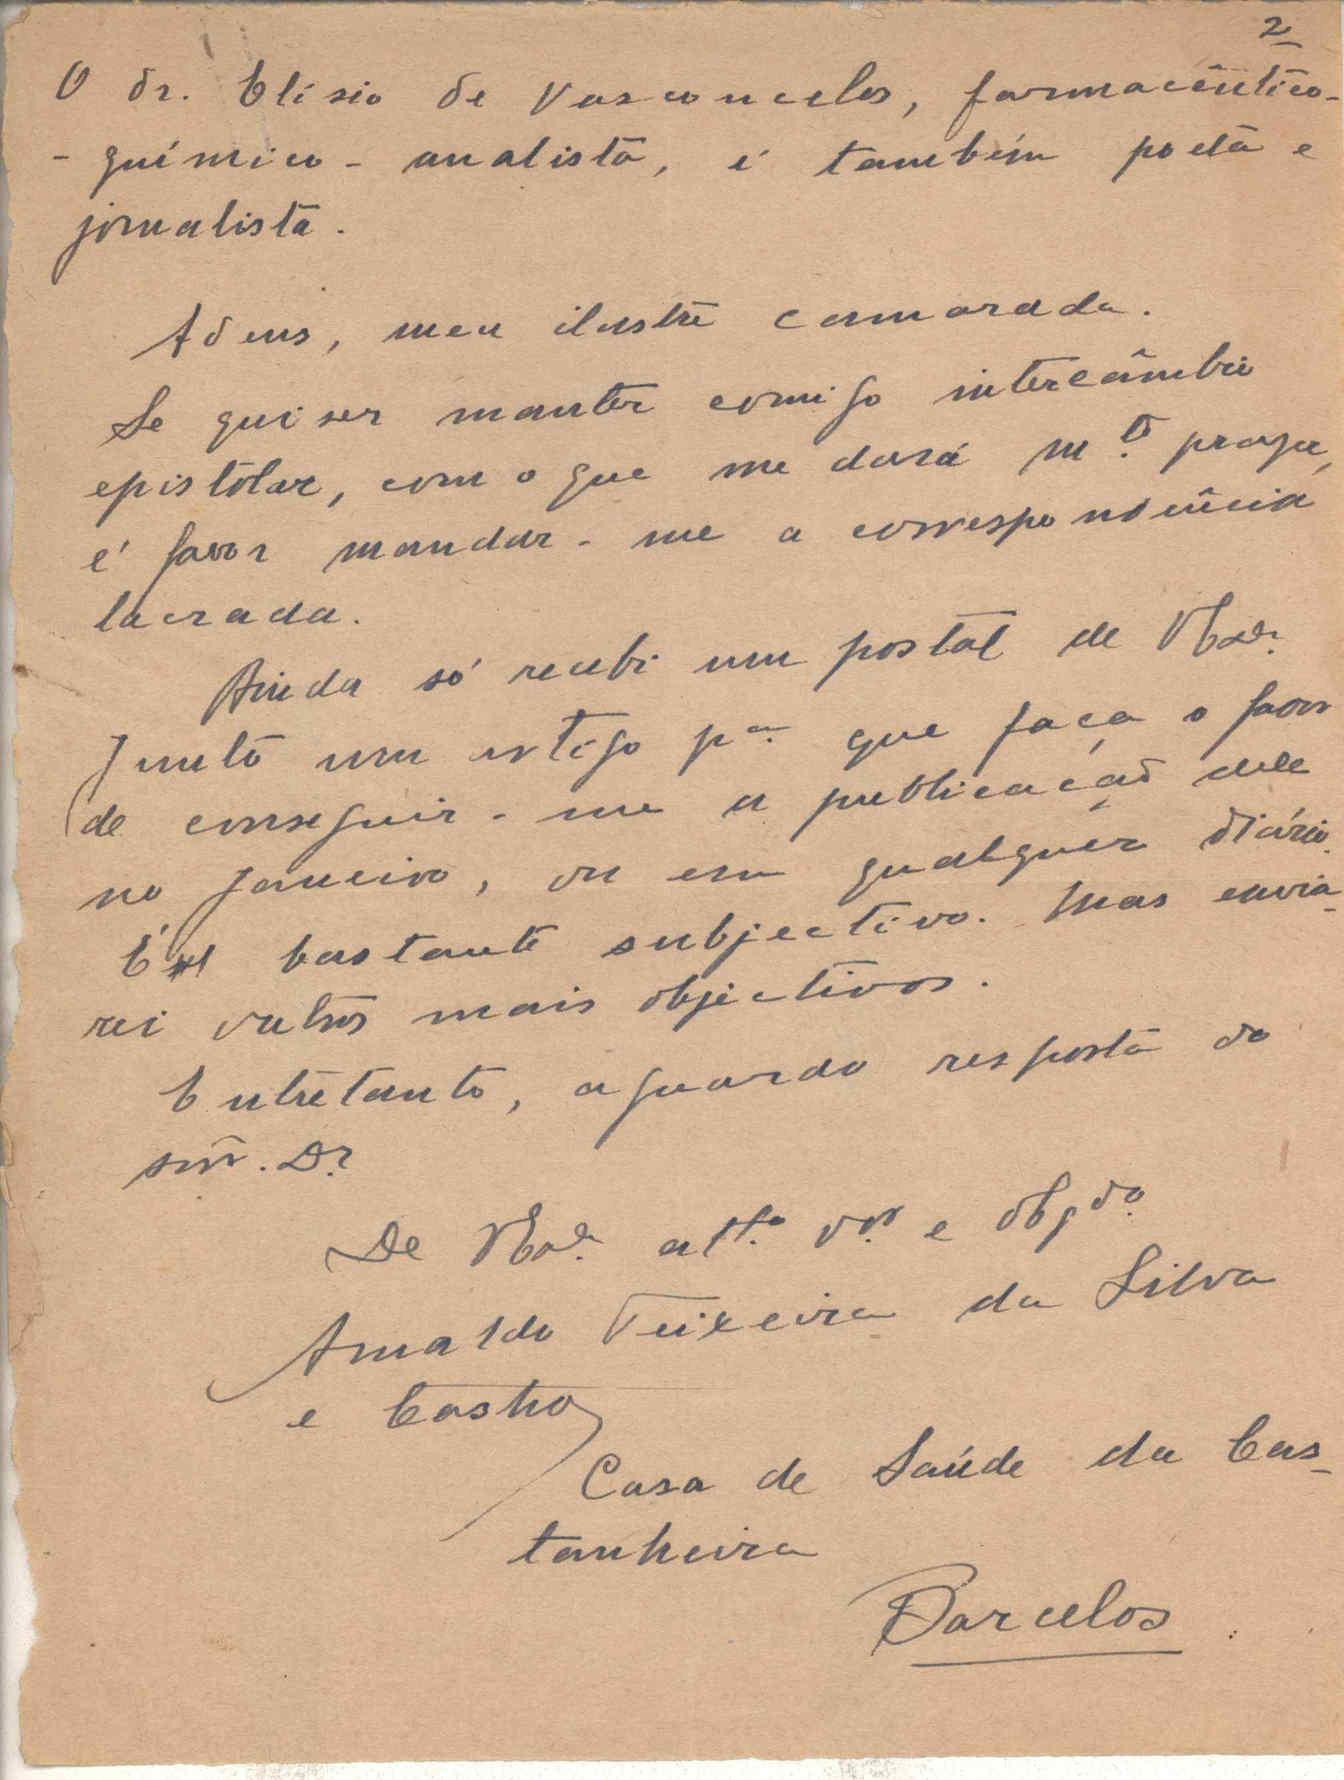 2
O Dr. Elísio de Vasconcelos, farmacêutico-
-químico-analista, é também poeta e
jornalista.
Adeus, meu ilustre camarada.
Se quiser manter comigo intercâmbio
epistolar, com o que me dará m.to prazer,
é favor mandar-me a correspondência
lacrada.
Ainda só recebi um postal de V. Ex.ª
Junto um artigo p.ª que faça o favor
de conseguir-me a publicação dele
no Janeiro, ou em qualquer diário.
É bastante subjectivo. Mas envia-
rei outros mais objectivos.
Entretanto, aguardo resposta do
snr. Dr.
De V. Ex.ª att.º v.or e obgdo.
Arnaldo Teixeira da Silva
e Castro
Casa de Saúde da Cas-
tanheira
Barcelos